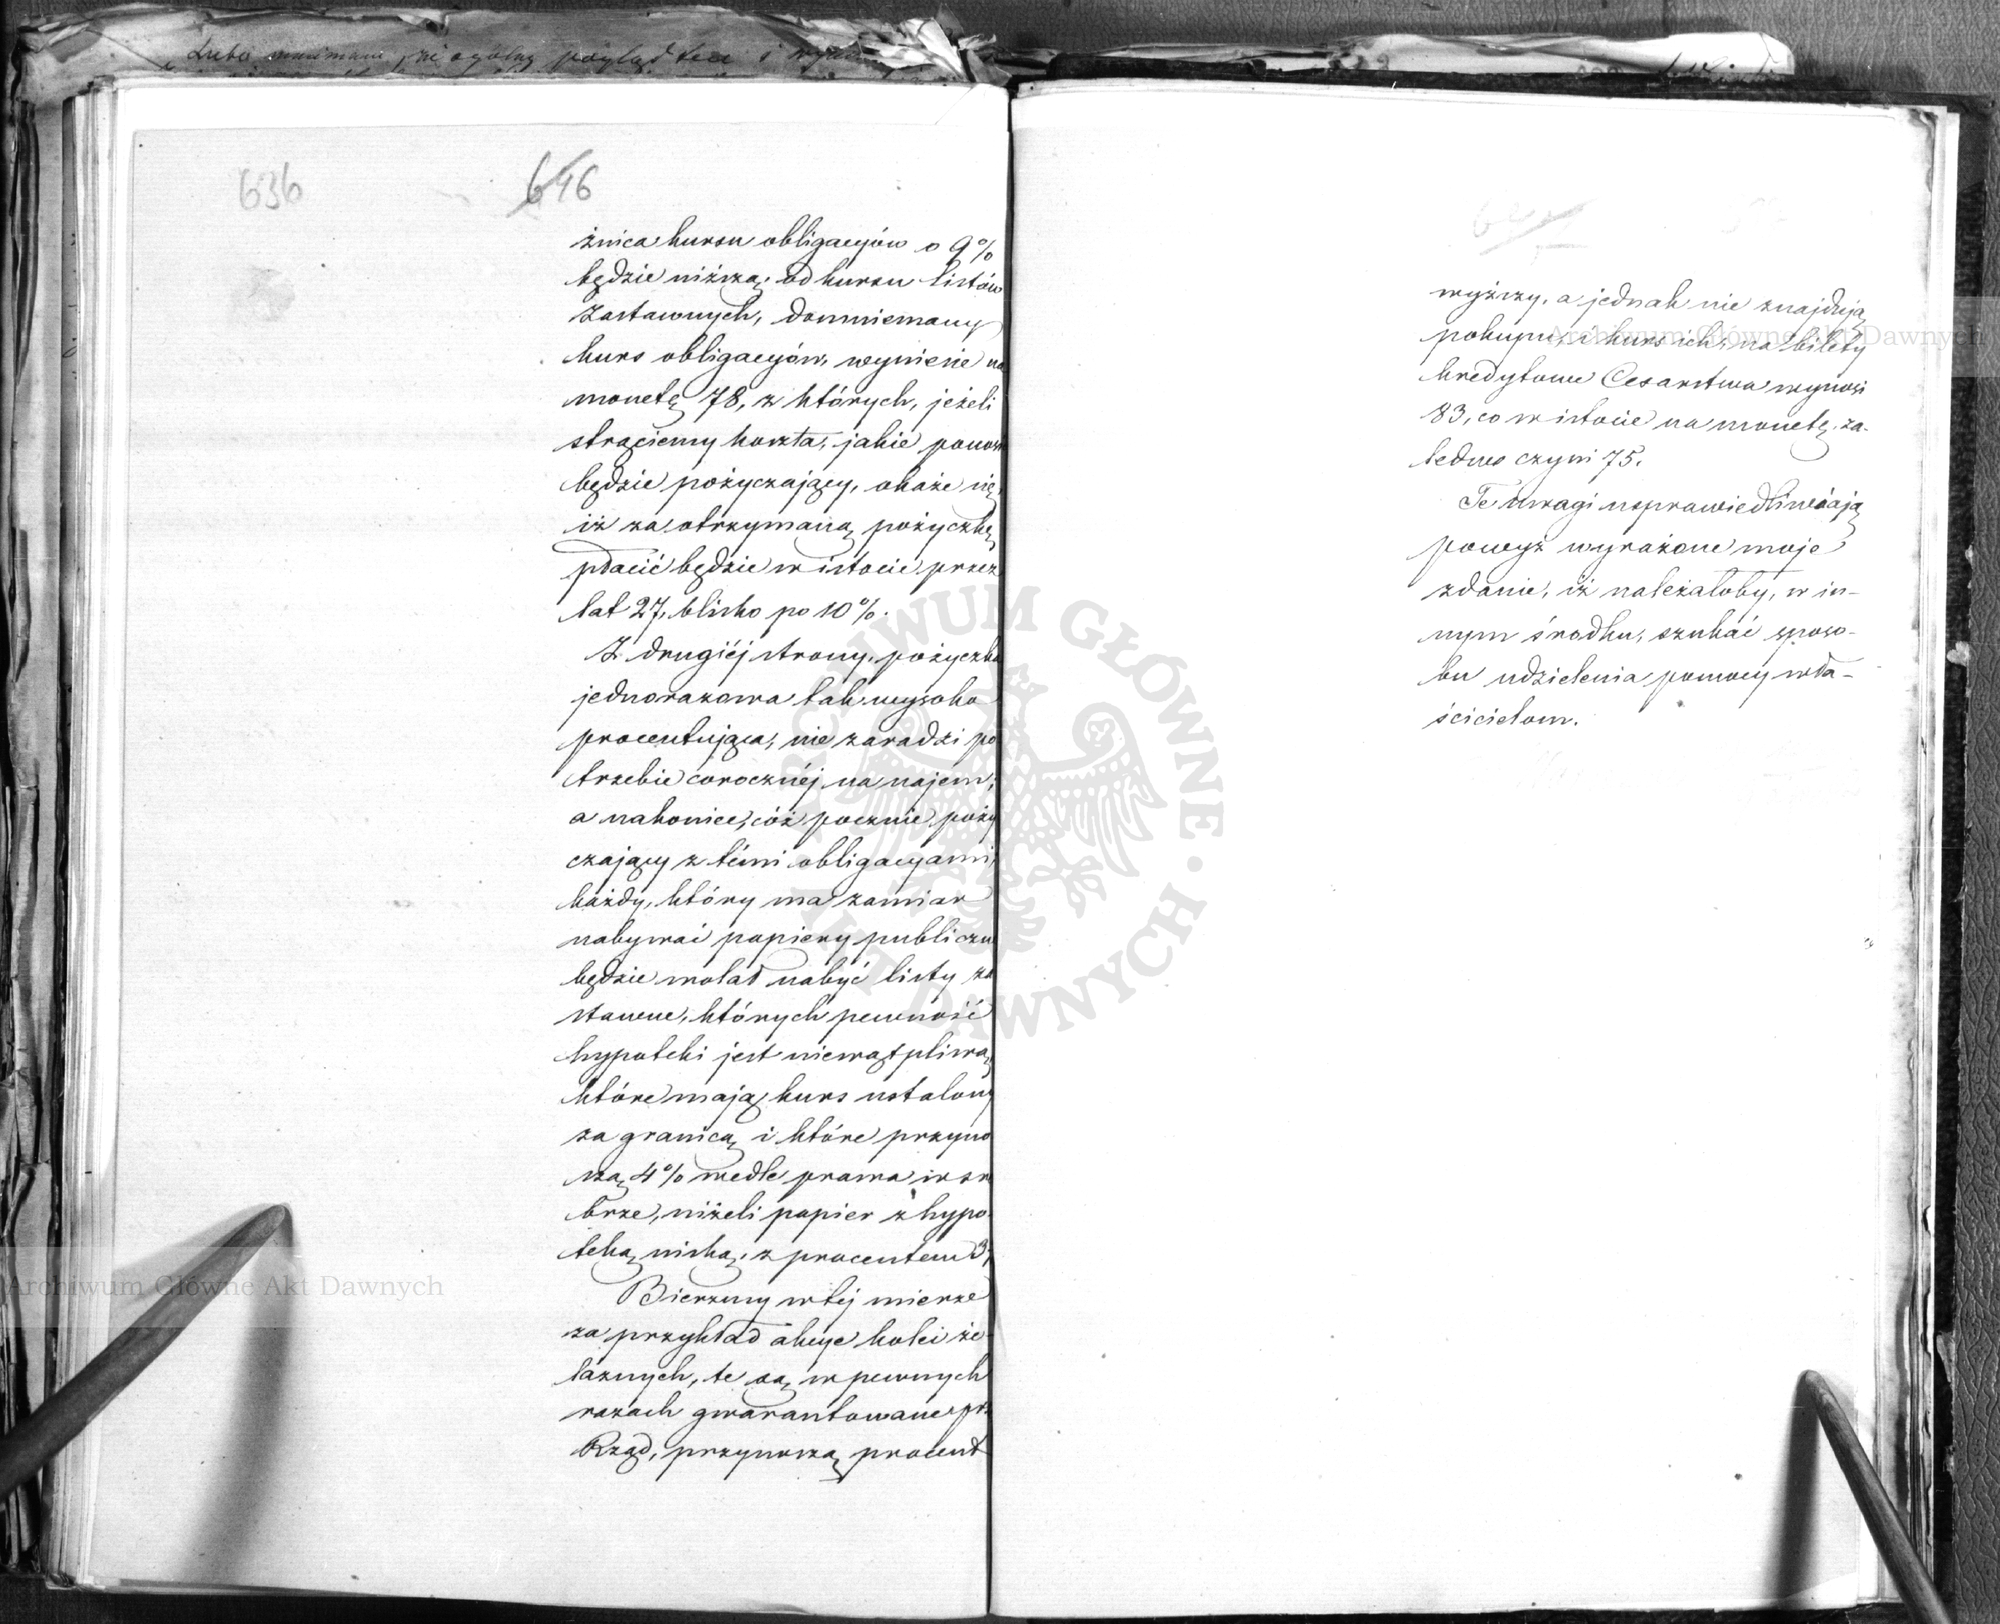 636
646
żnica kursu obligacyów o 9%
będzie niższą, od kursu listów
Zastawnych, domniemany
kurs obligacyów, wyniesie na
monetę 78, z których, jeżeli
strąciemy koszta, jakie
będzie pożyczający, okaże się,
iż za otrzymaną pożyczkę
płacić będzie w istocie przez
lat 27, blisko po 10%.
Z drugiéj strony, pożyczka
jednorazowa tak wysoko
procentująca, nie zaradzi po
trzebie corocznéj na najem;
a nakoniec, cóż pocznie poży
czający z témi obligacyami,
każdy, który ma zamiar
nabywać papiery publiczne
będzie wolał nabyć listy za
stawne, których pewność
hypoteki jest niewątpliwą,
które mają kurs ustalony
za granicą i które przyno
szą 4% wedle prawa w sre
brze, niżeli papier z hypo
teką niską, z procentem 3,
Bierzmy w téj mierze
za przykład akcye kolei że
laznych, te są w pewnych
razach gwarantowane prz
Rząd, przynoszą procent
wyższy, a jednak nie znajdują
pokupu, i kurs ich, na bilety
kredytowe Cesarstwa wynosi
83, co w istocie na monetę, za-
ledwo czyni 75.
Te uwagi usprawiedliwiają
powyż wyrażone moje
zdanie, iż należałoby, w in-
nym środku, szukać sposo-
bu udzielenia pomocy wła-
ścicielom.
Archiwum Główne Akt Dawnych
Archiwum Główne Akt Dawnych
ARCHIWUM GŁÓWNE · AKT DAWNYCH ·